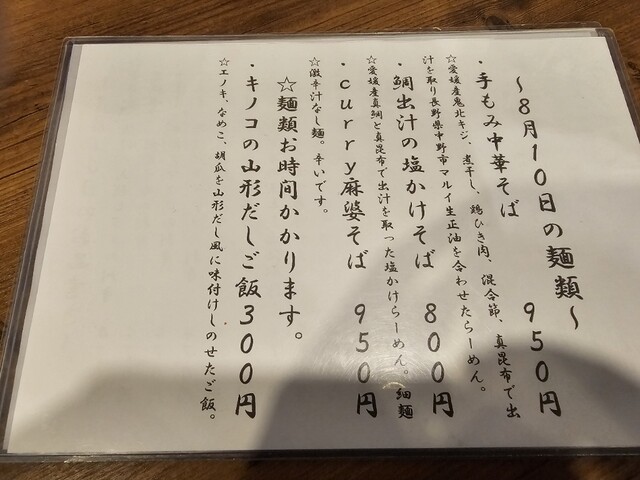 ～8月10日の麺類～
・手もみ中華そば　950円
☆愛媛産鬼北キジ、煮干し、鶏ひき肉、混合節、真昆布で出
汁を取り長野県中野市マルイ生正油を合わせたらーめん。
・鯛出汁の塩かけそば　800円
☆愛媛産真鯛と真昆布で出汁を取った塩かけらーめん。細麺
・curry麻婆そば　950円
☆激辛汁なし麺。辛いです。
☆麺類お時間かかります。
・キノコの山形だしご飯300円
☆エノキ、なめこ、胡瓜を山形だし風に味付けしのせたご飯。